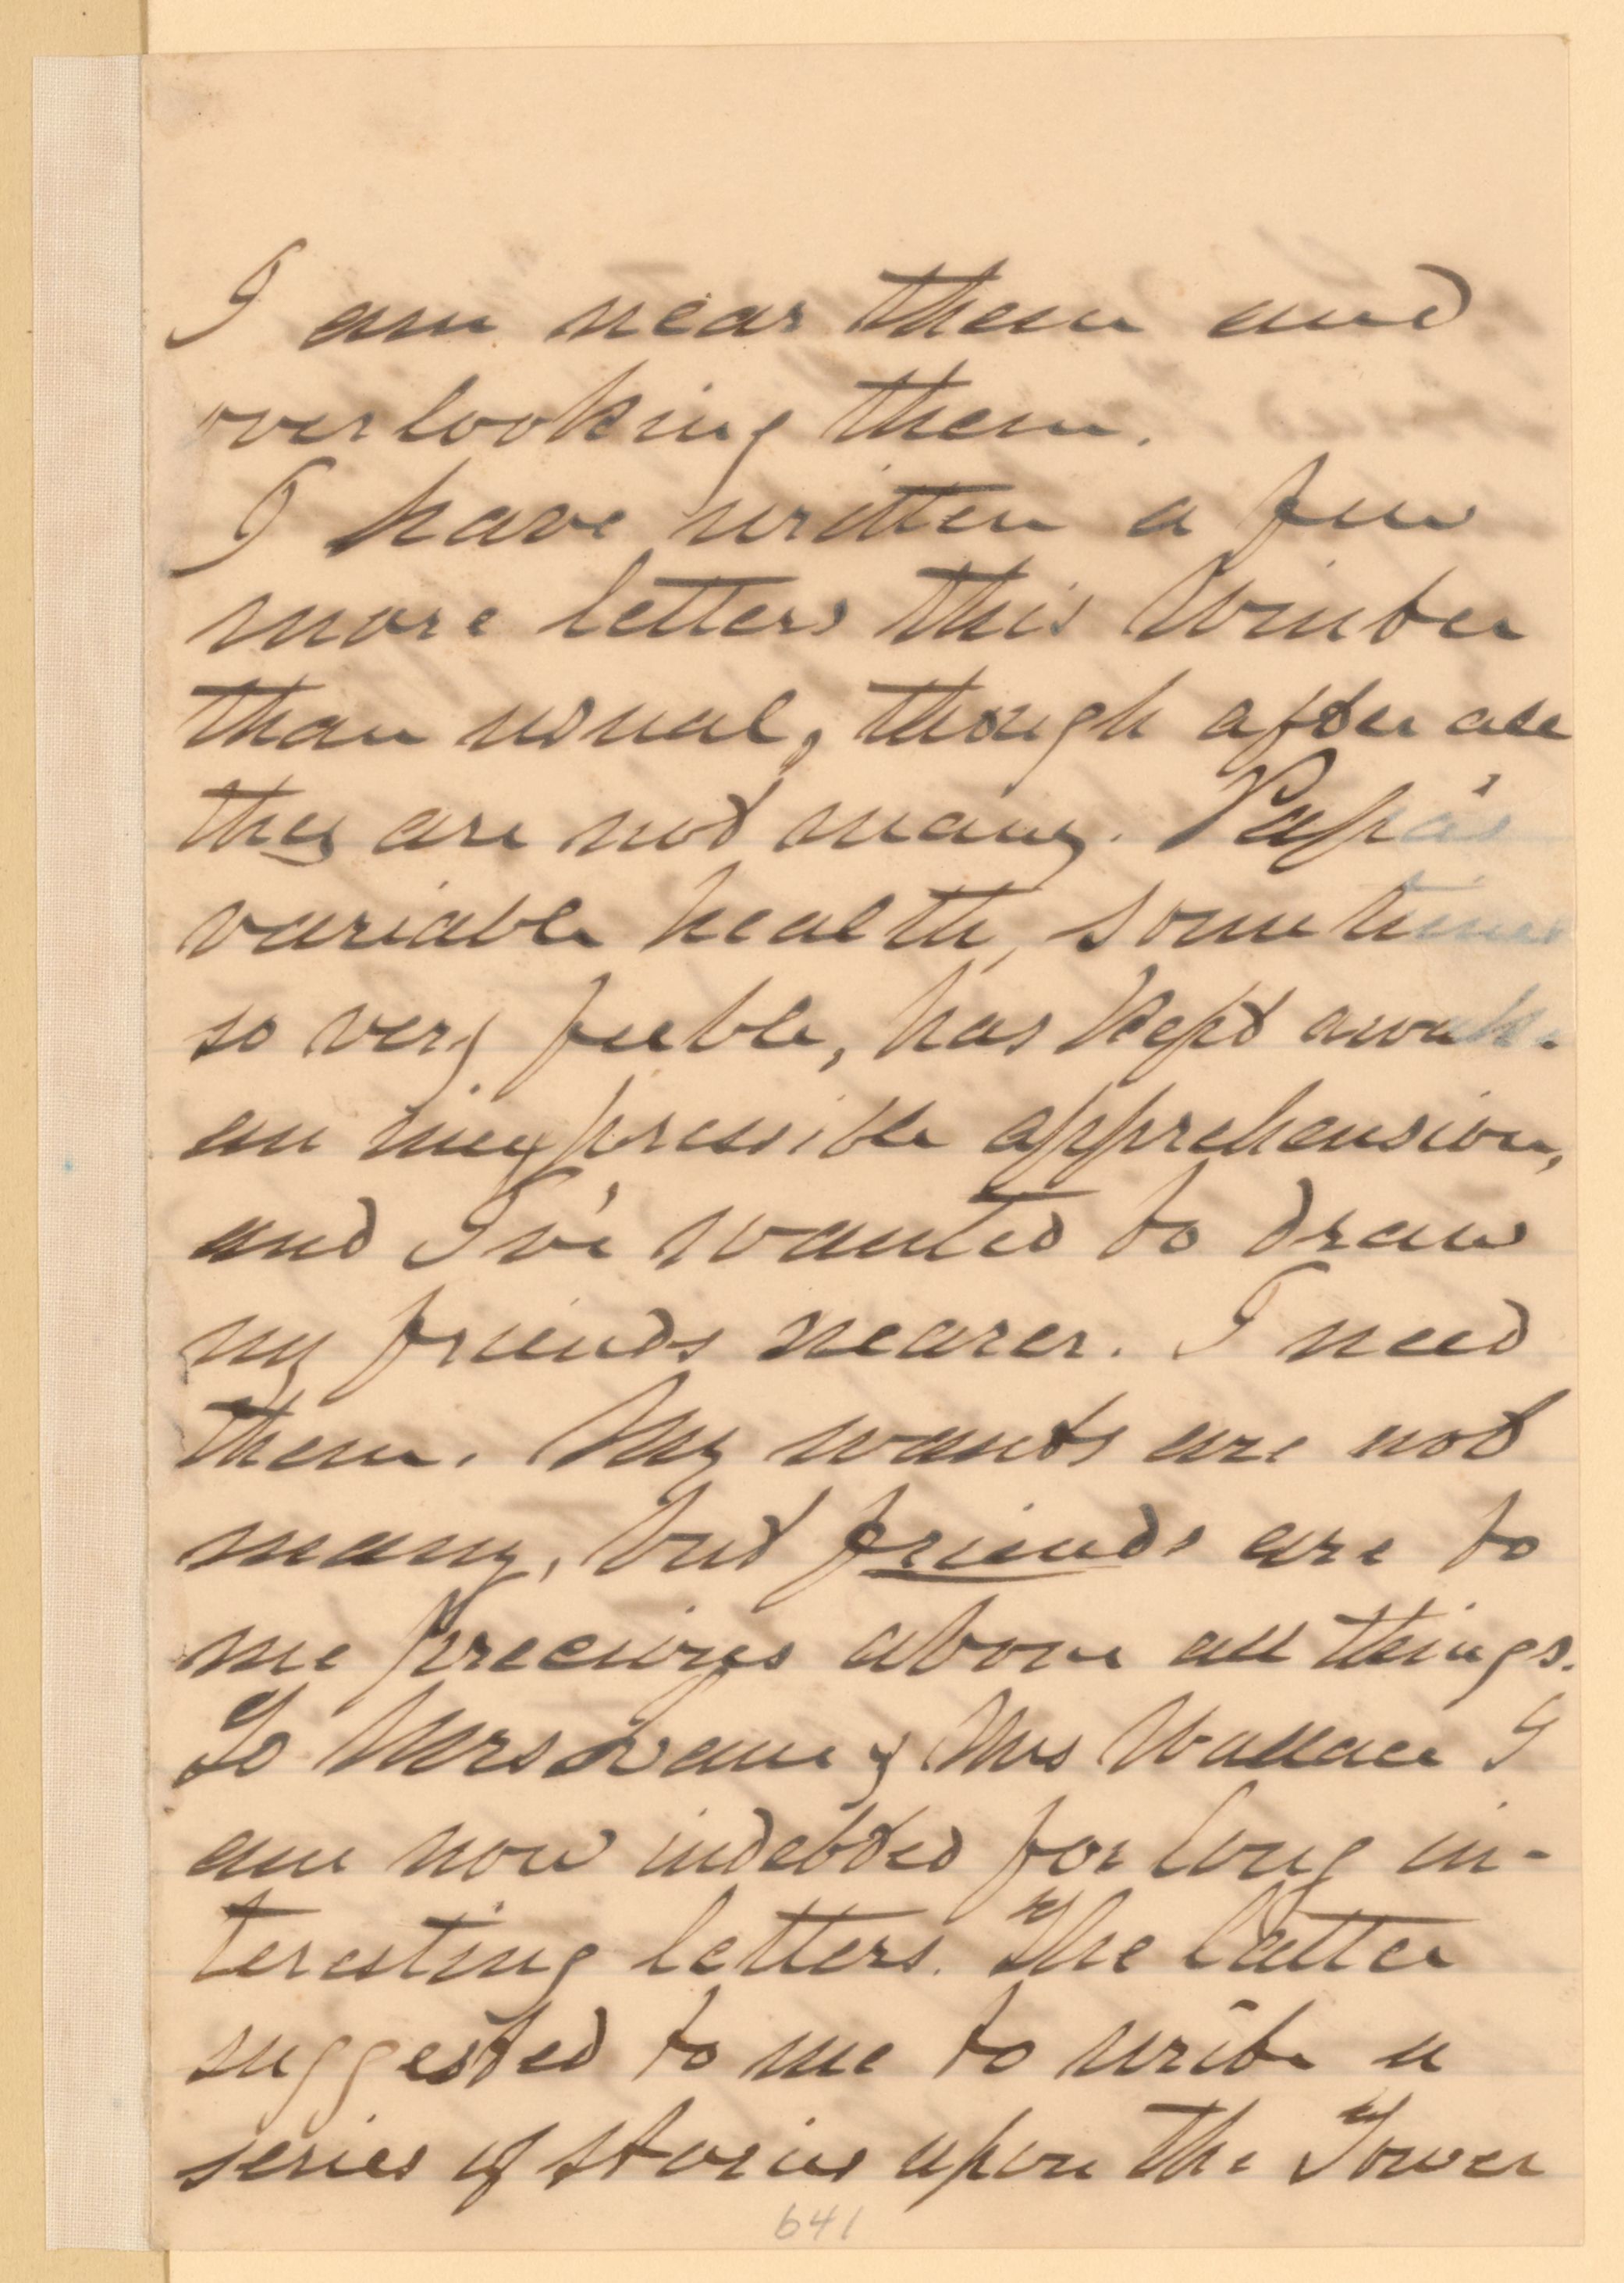 I am near them and
overlooking them.
I have written a few
more letters this Winter
than usual, though after all
they are not many. Papa's
variable health, sometimes
so very feeble, has kept awake
an inexpressible apprehension,
and I've wanted to draw
my friends nearer. I need
them. My wants are not
many, but friends are to
me precious above all things.
To Mrs Lane & Mrs Wallace I
am now indebted for long in-
teresting letters. The latter
suggested to me to write a
series of stories upon the Tower
641